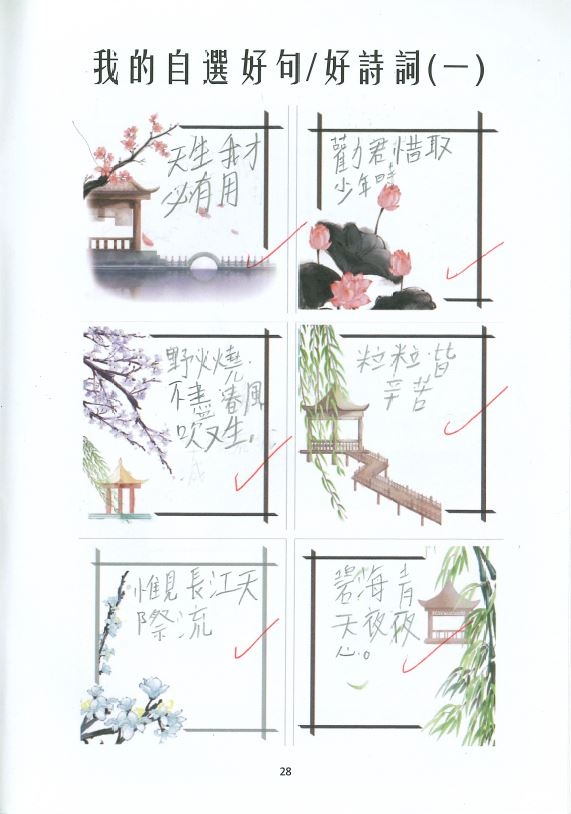 我的自選好句/好詩詞(一)
天生我才
必有用
勸君惜取
少年時
野火燒
不盡春風
吹又生。
粒粒皆
辛苦
惟見長江天
際流
碧海青
天夜夜
心。
28